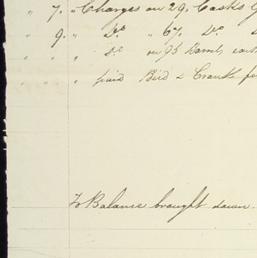 " 7. " Charges on 29. Casks
" 9. " Do. " 67. Do.
" " Do. on 95 Barrels
" " paid Bird &
To Balance brought down.